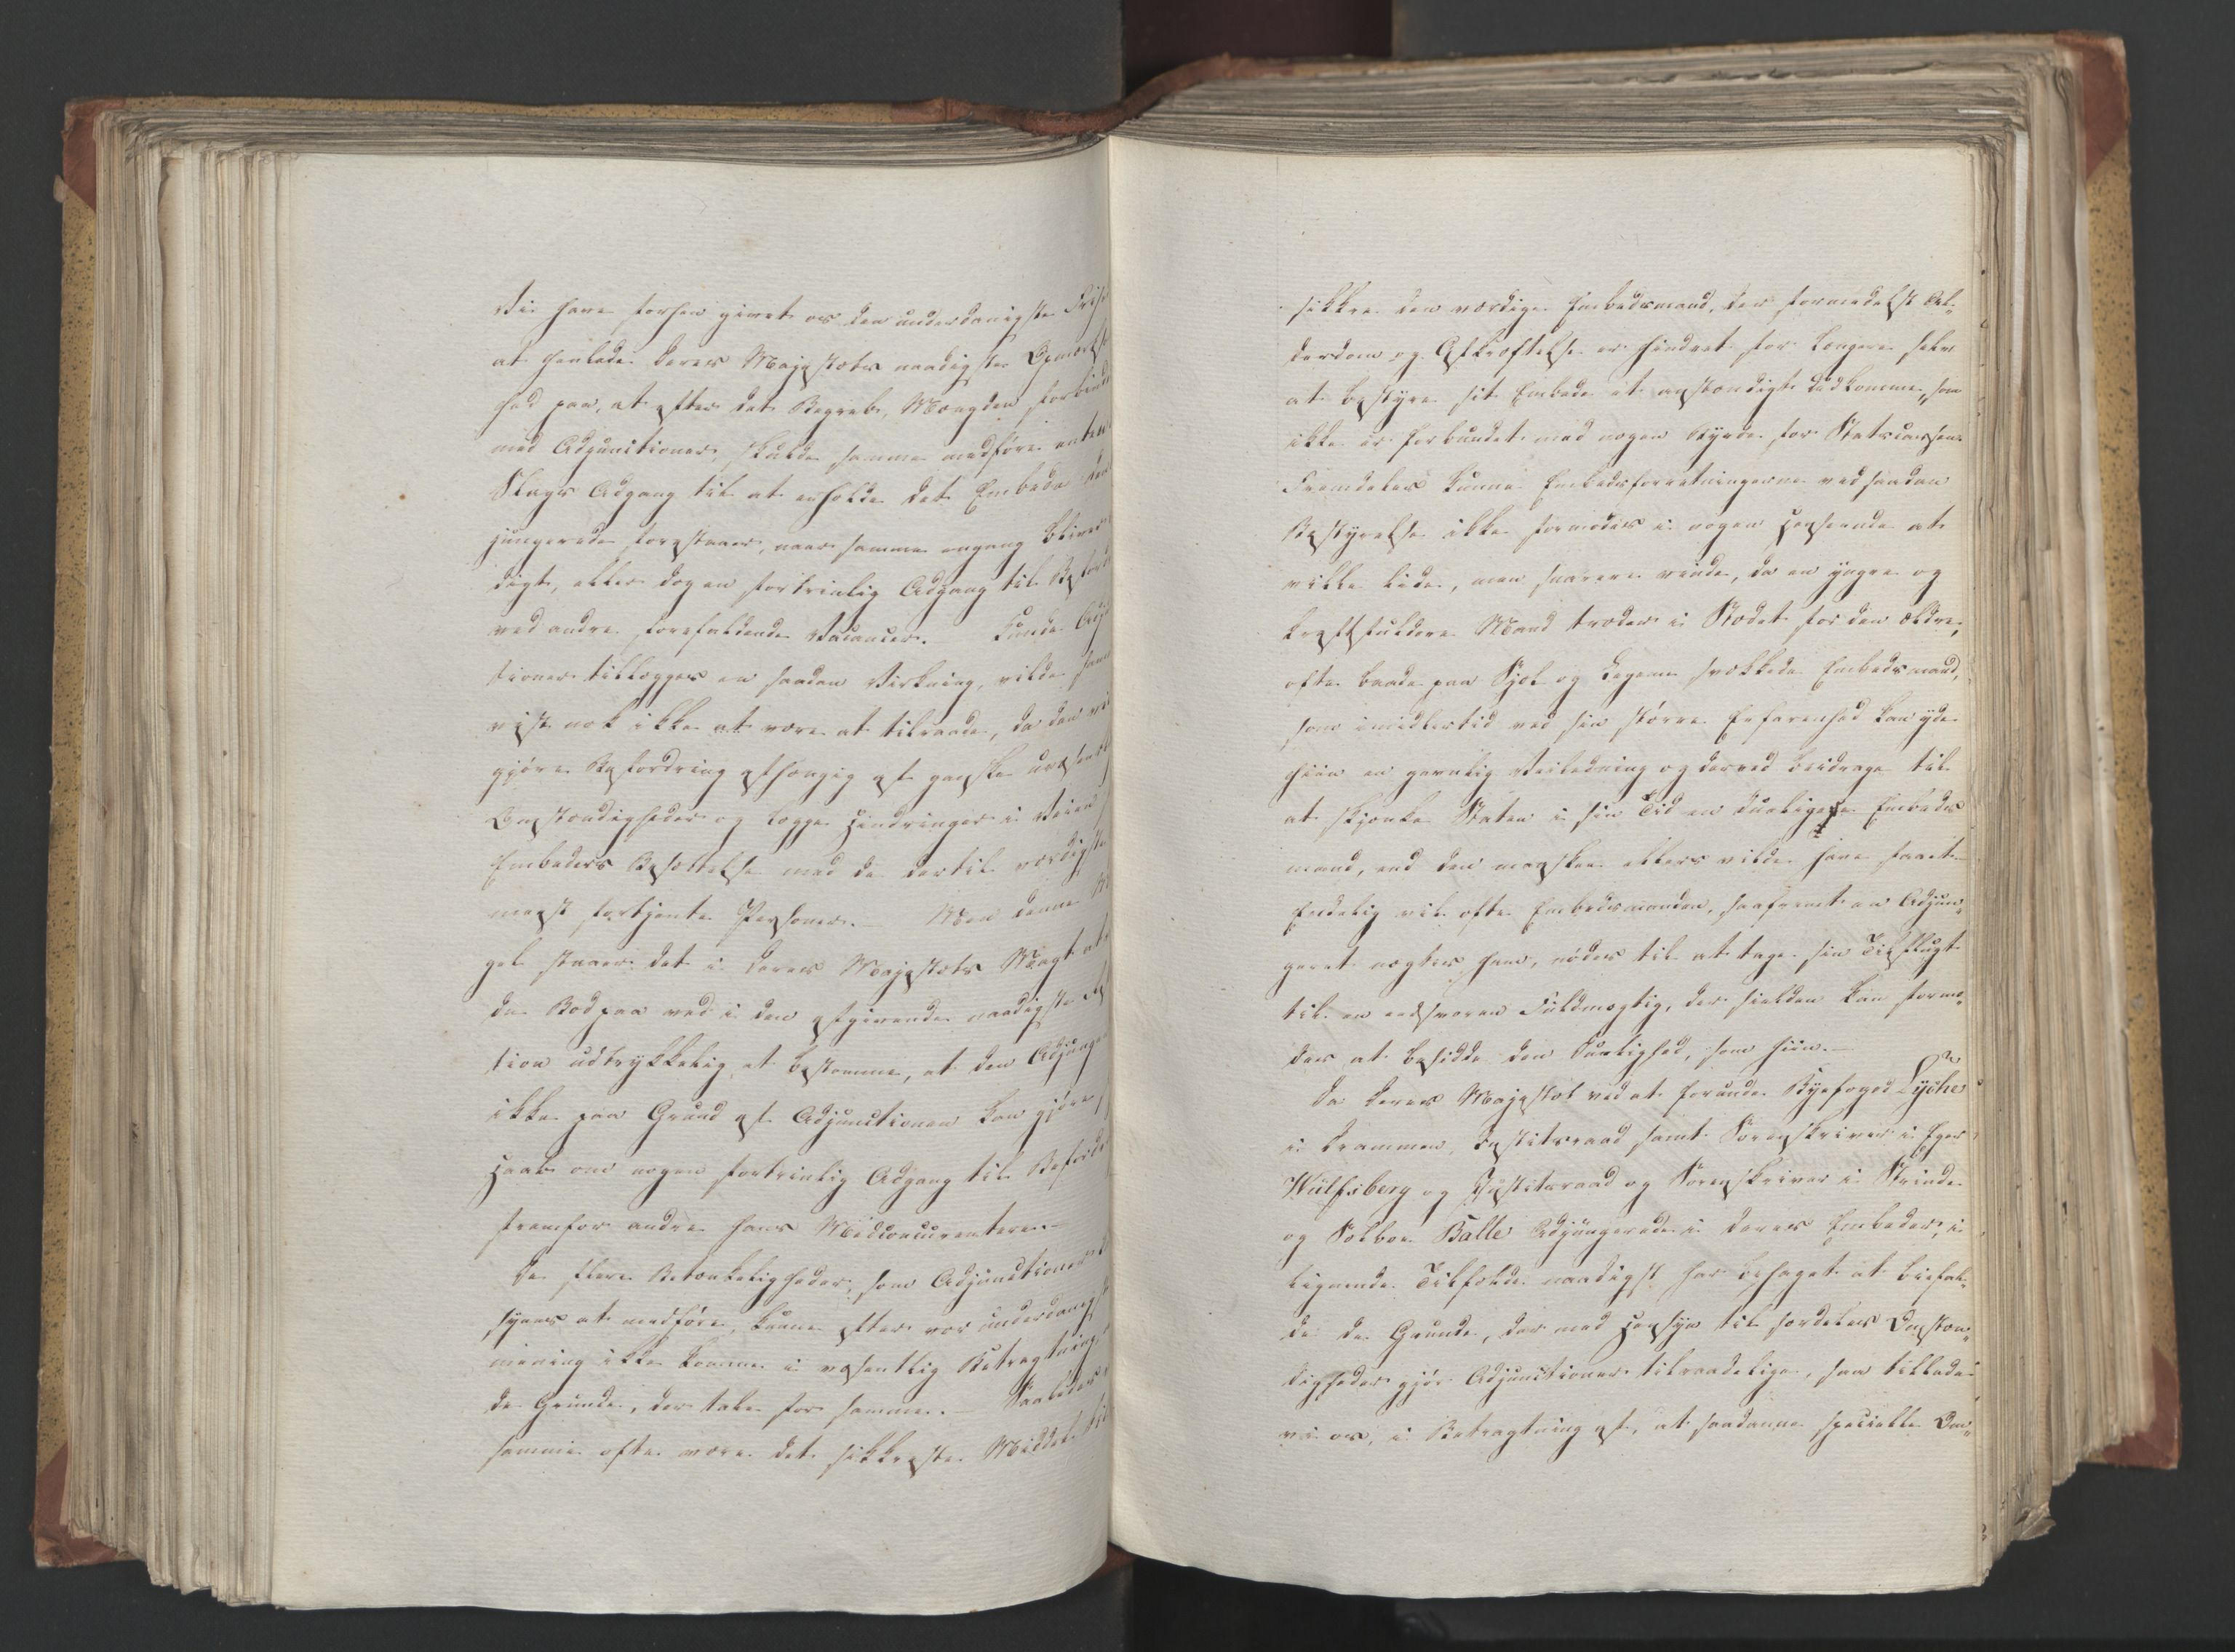 Vi have forhen givet os den underdanigste Frihed
at henlede Deres Majestæts naadigste Opmærksom
hed paa, at efter det Begreb, Mængden forbinder
med Adjunctioner, skulde samme medføre enten
Slags Adgang til at erholde det Embede den
jungerede forestaaer, naar samme engang bliver
digt, eller dog en fortrinlig Adgang til Befor
ved andre forefaldende Vacancer. Kunde Adj
tioner tillægges en saadan Virkning, vilde sam
vist nok ikke at være at tilraade, da den vil
gjøre Befordring afhængig af ganske uvæsent
Omstændigheder og lægge Hindringer i Veien
Embeders Besættelse med de dertil værdigste
meest fortjente Personer. — Men denne
gel staaer det i Deres Majestæts Magt at
de Bod paa ved i den afgivende naadigste
tion udtrykkelig at bestemme, at den Adjunge
ikke paa Grund af Adjunctionen kan gjøre
Haab om nogen fortrinlig Adgang til Befordr
fremfor andre hans Medconcurrentere. —
De flere Betænkeligheder, som Adjunctioner
synes at medføre, kunne efter vor underdanigste
mening ikke komme i væsentlig Betragtning
de Grunde, der tale for samme. — Saaledes
samme ofte være det sikkreste Middel til
sikkre den værdige Embedsmand, der formedelst Al„
derdom og Afkræftelse er hindret for længere selv
at bestyre sit Embede et anstændigt Udkomme, som
ikke er forbundet med nogen Byrde for Statscassen.
Fremdeles kunne Embedsforretningerne ved saadan
Bestyrelse ikke formodes i nogen Henseende at
ville lide, men snarere vinde, da en yngre og
kraftfuldere Mand træder i Stedet for den ældre,
ofte baade paa Sjæl og Legeme svækkede Embedsmand,
som imidlertid ved sin større Erfarenhed kan yde
hiin en gavnlig Veiledning og derved bidrage til
at skjænke Staten i sin Tid en dueligere Embeds
mand, end den maaskee ellers vilde have faaet.
Endelig vil ofte Embedsmanden, saafremt en Adjun„
geret nægtes ham, nødes til at tage sin Tilflugt
til en eedsvoren Fuldmægtig, der sielden kan formo„
des at besidde den Duelighed, som hiin. —
Da Deres Majestæt ved at forunde Byefoged Lyche
i Drammen, Justitsraad samt Sorenskriver i Eger
Wulfsberg og Justitsraad og Sorenskriver i Strinde
og Selboe Balle Adjungerede i deres Embeder, i
lignende Tilfælde naadigst har behaget at biefal„
de de Grunde, der med Hensyn til særdeles Omstæn„
digheder gjør Adjunctioner tilraadelige, saa tillade
vi os, i Betragtning af, at saadanne specielle Om„